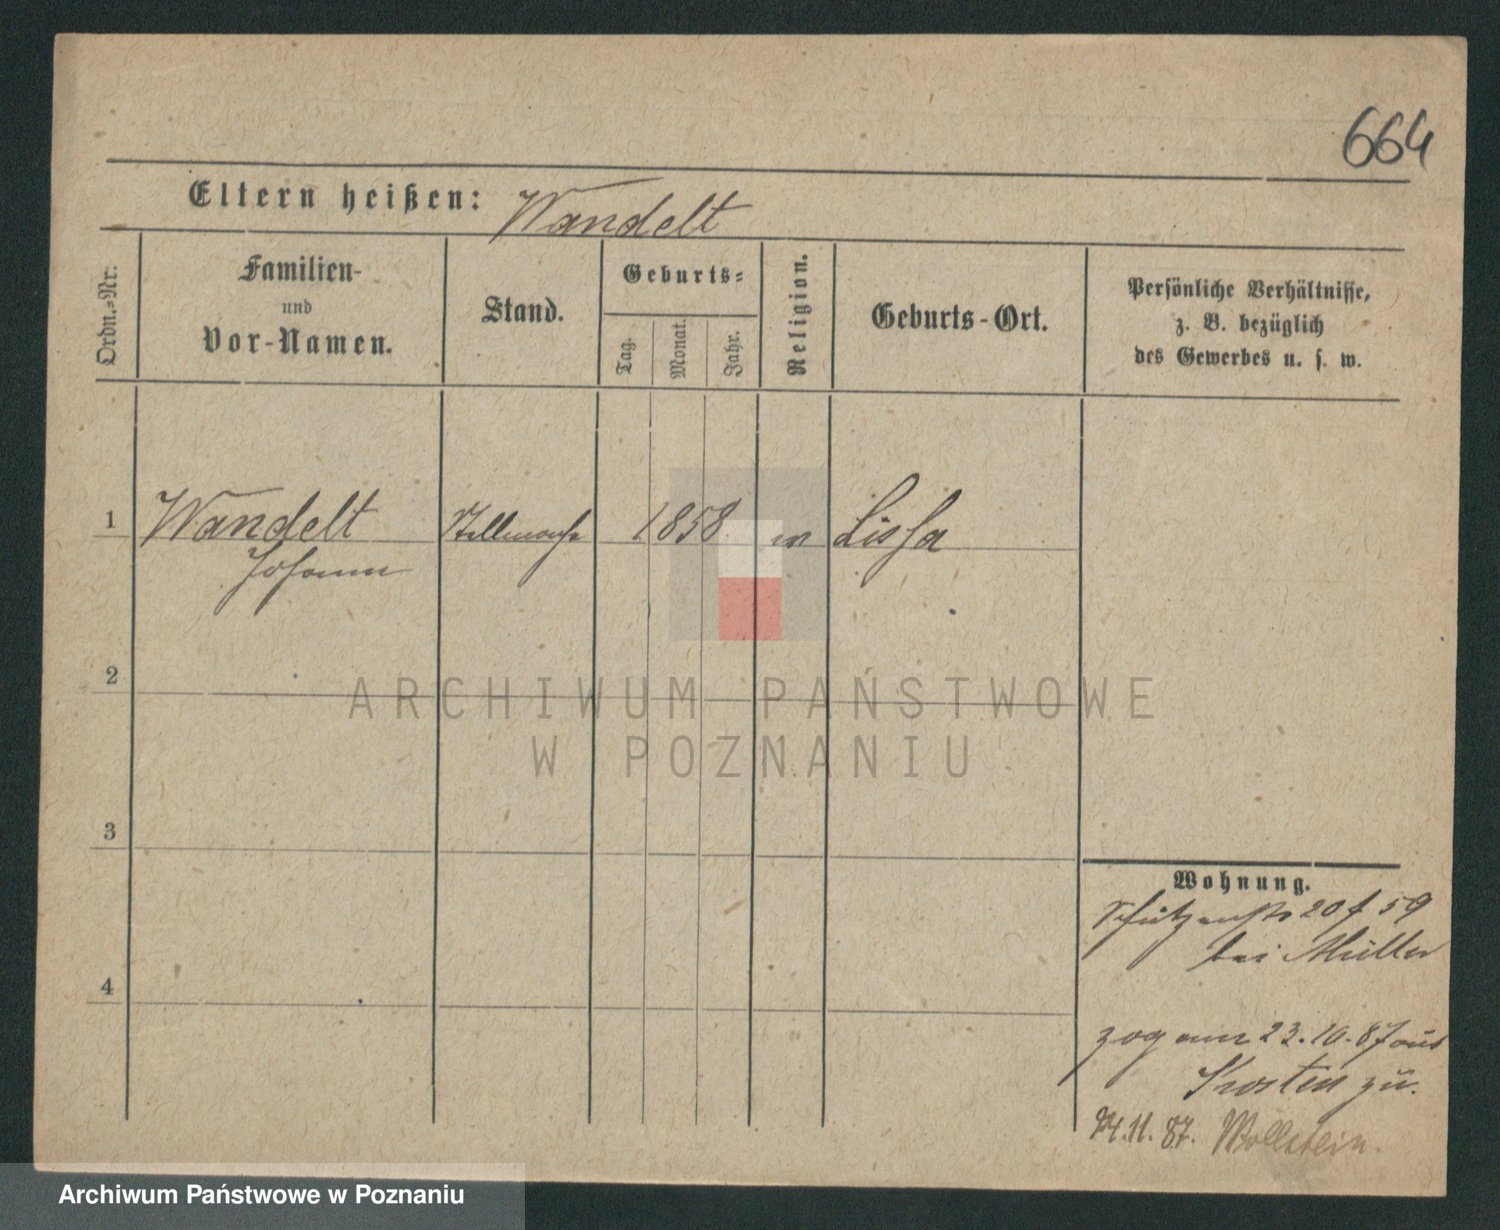 664
Eltern heißen: Wandelt
Ordn.-Nr.
Familien-
und
Vor-Namen.
Stand.
Geburts-
Tag.
Monat.
Jahr.
Religion.
Geburts-Ort.
Persönliche Verhältnisse,
z. B. bezüglich
des Gewerbes u. s. w.
1 Wandelt Stellmach 1858 Lissa
Johann
2
ARCHIWUM PAŃSTWOWE
W POZNANIU
3
4
Wohnung.
Schützenstr 20 f 59
bei Müller
zog am 23.10.87 aus
Kosten zu.
11.87. Wollstein.
Archiwum Państwowe w Poznaniu